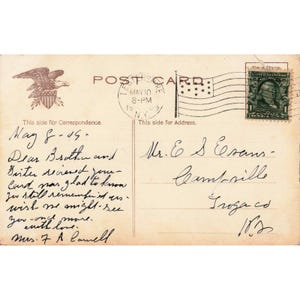 POST CARD
MAY 10
8-PM
N.Y.
This side for Correspondence.
This side for Address.
May 8-09.
Dear Brother and
Sister recieved your
card was glad to know
you still remembered us.
wish we might see
you once more.
with love.
Mrs. F A
Mr. E S Evans.
Tioga co